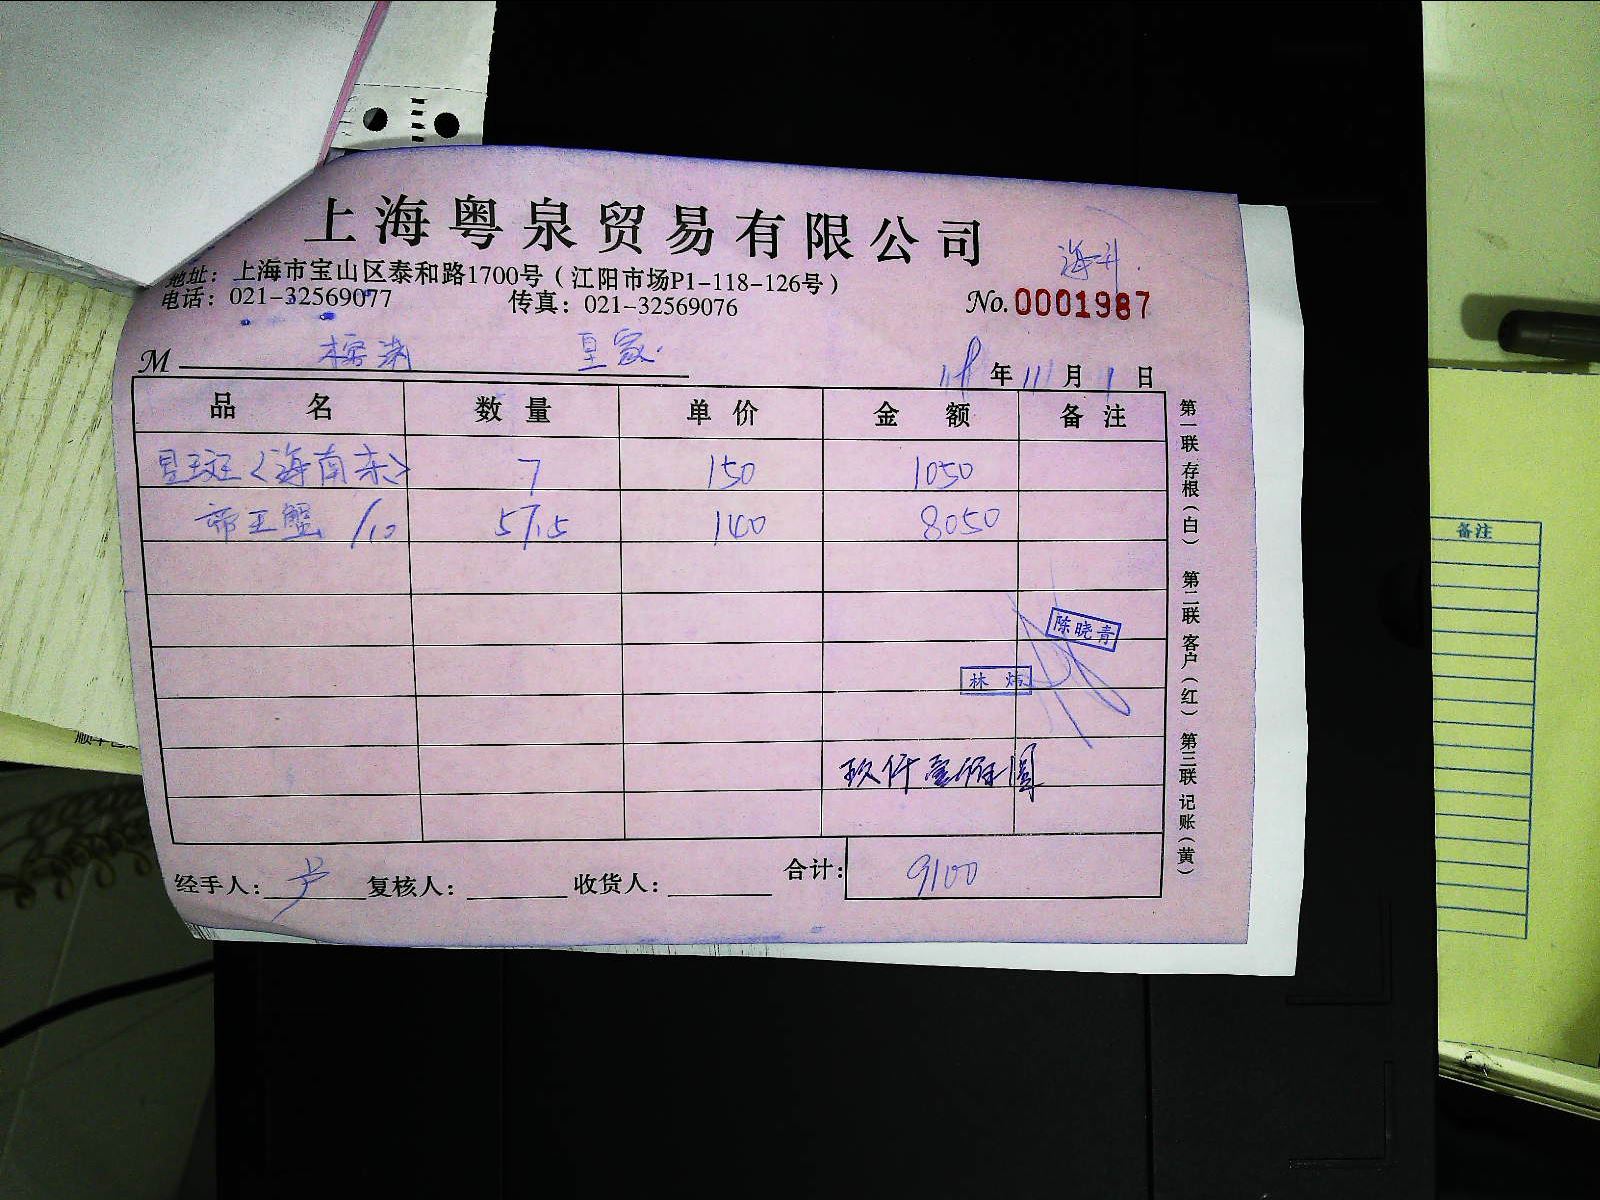 上海粤泉贸易有限公司
海升
地址：上海市宝山区泰和路1700号（江阳市场P1-118-126号）
电话：021-32569077 传真：021-32569076 No. 0001987
M 皇家
18年11月1日
品名 数量 单价 金额 备注
星斑〈海南东〉 7 150 1050
帝王蟹 /10 57.5 140 8050
陈晓青
林炳
玖仟壹佰圆
合计： 9100
经手人： 复核人： 收货人：
第一联 存根（白） 第二联 客户（红） 第三联 记账（黄）
备注